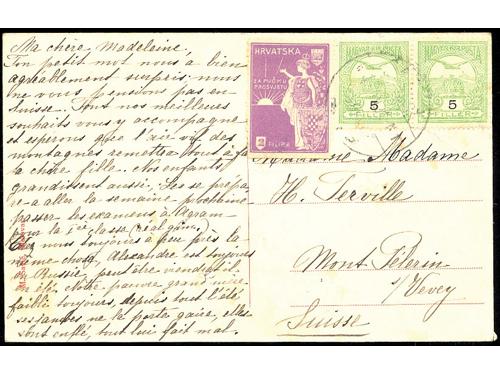 Ma chère Madeleine.
Ton petit mot nous a bien
agréablement surpris: nous
ne vous pensions pas en
Suisse. Tout nos meilleures
souhaits vous y accompagne
et esperons que l'air vif des
montagnes remettra tout à fait
la chère fille. Nos enfants
grandissent aussi. Les se prépa
re-a aller la semaine prochaine
passer les examens à Agram
pour la classe (réal gimn.)
Chez nous toujours à peu près la
même chose, Alexandre est toujours
en Russie, peut être viendra-t-il
Notre pauvre grand mère
faiblit toujours, depuis tout l'été
ses jambes ne la porte guère, elles
sont enflé, tout lui fait mal.
HRVATSKA
ZA PUČKU
PROSVJETU
2
FILIRA
MAGYAR KIR. POSTA
5
FILLÉR
MAGYAR KIR. POSTA
5
FILLÉR
Madame
H. Terville
Mont Pélerin
s/Vevey
Suisse